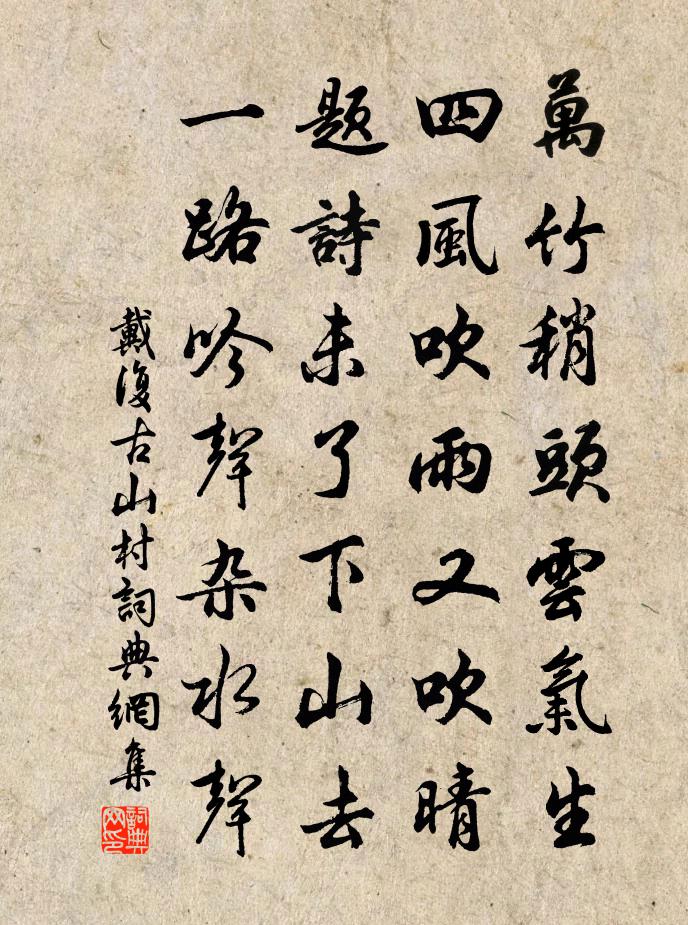 萬竹稍頭雲氣生
四風吹雨又吹晴
題詩未了下山去
一路吟聲杂水聲
戴復古山村詞典網集
詞典网印